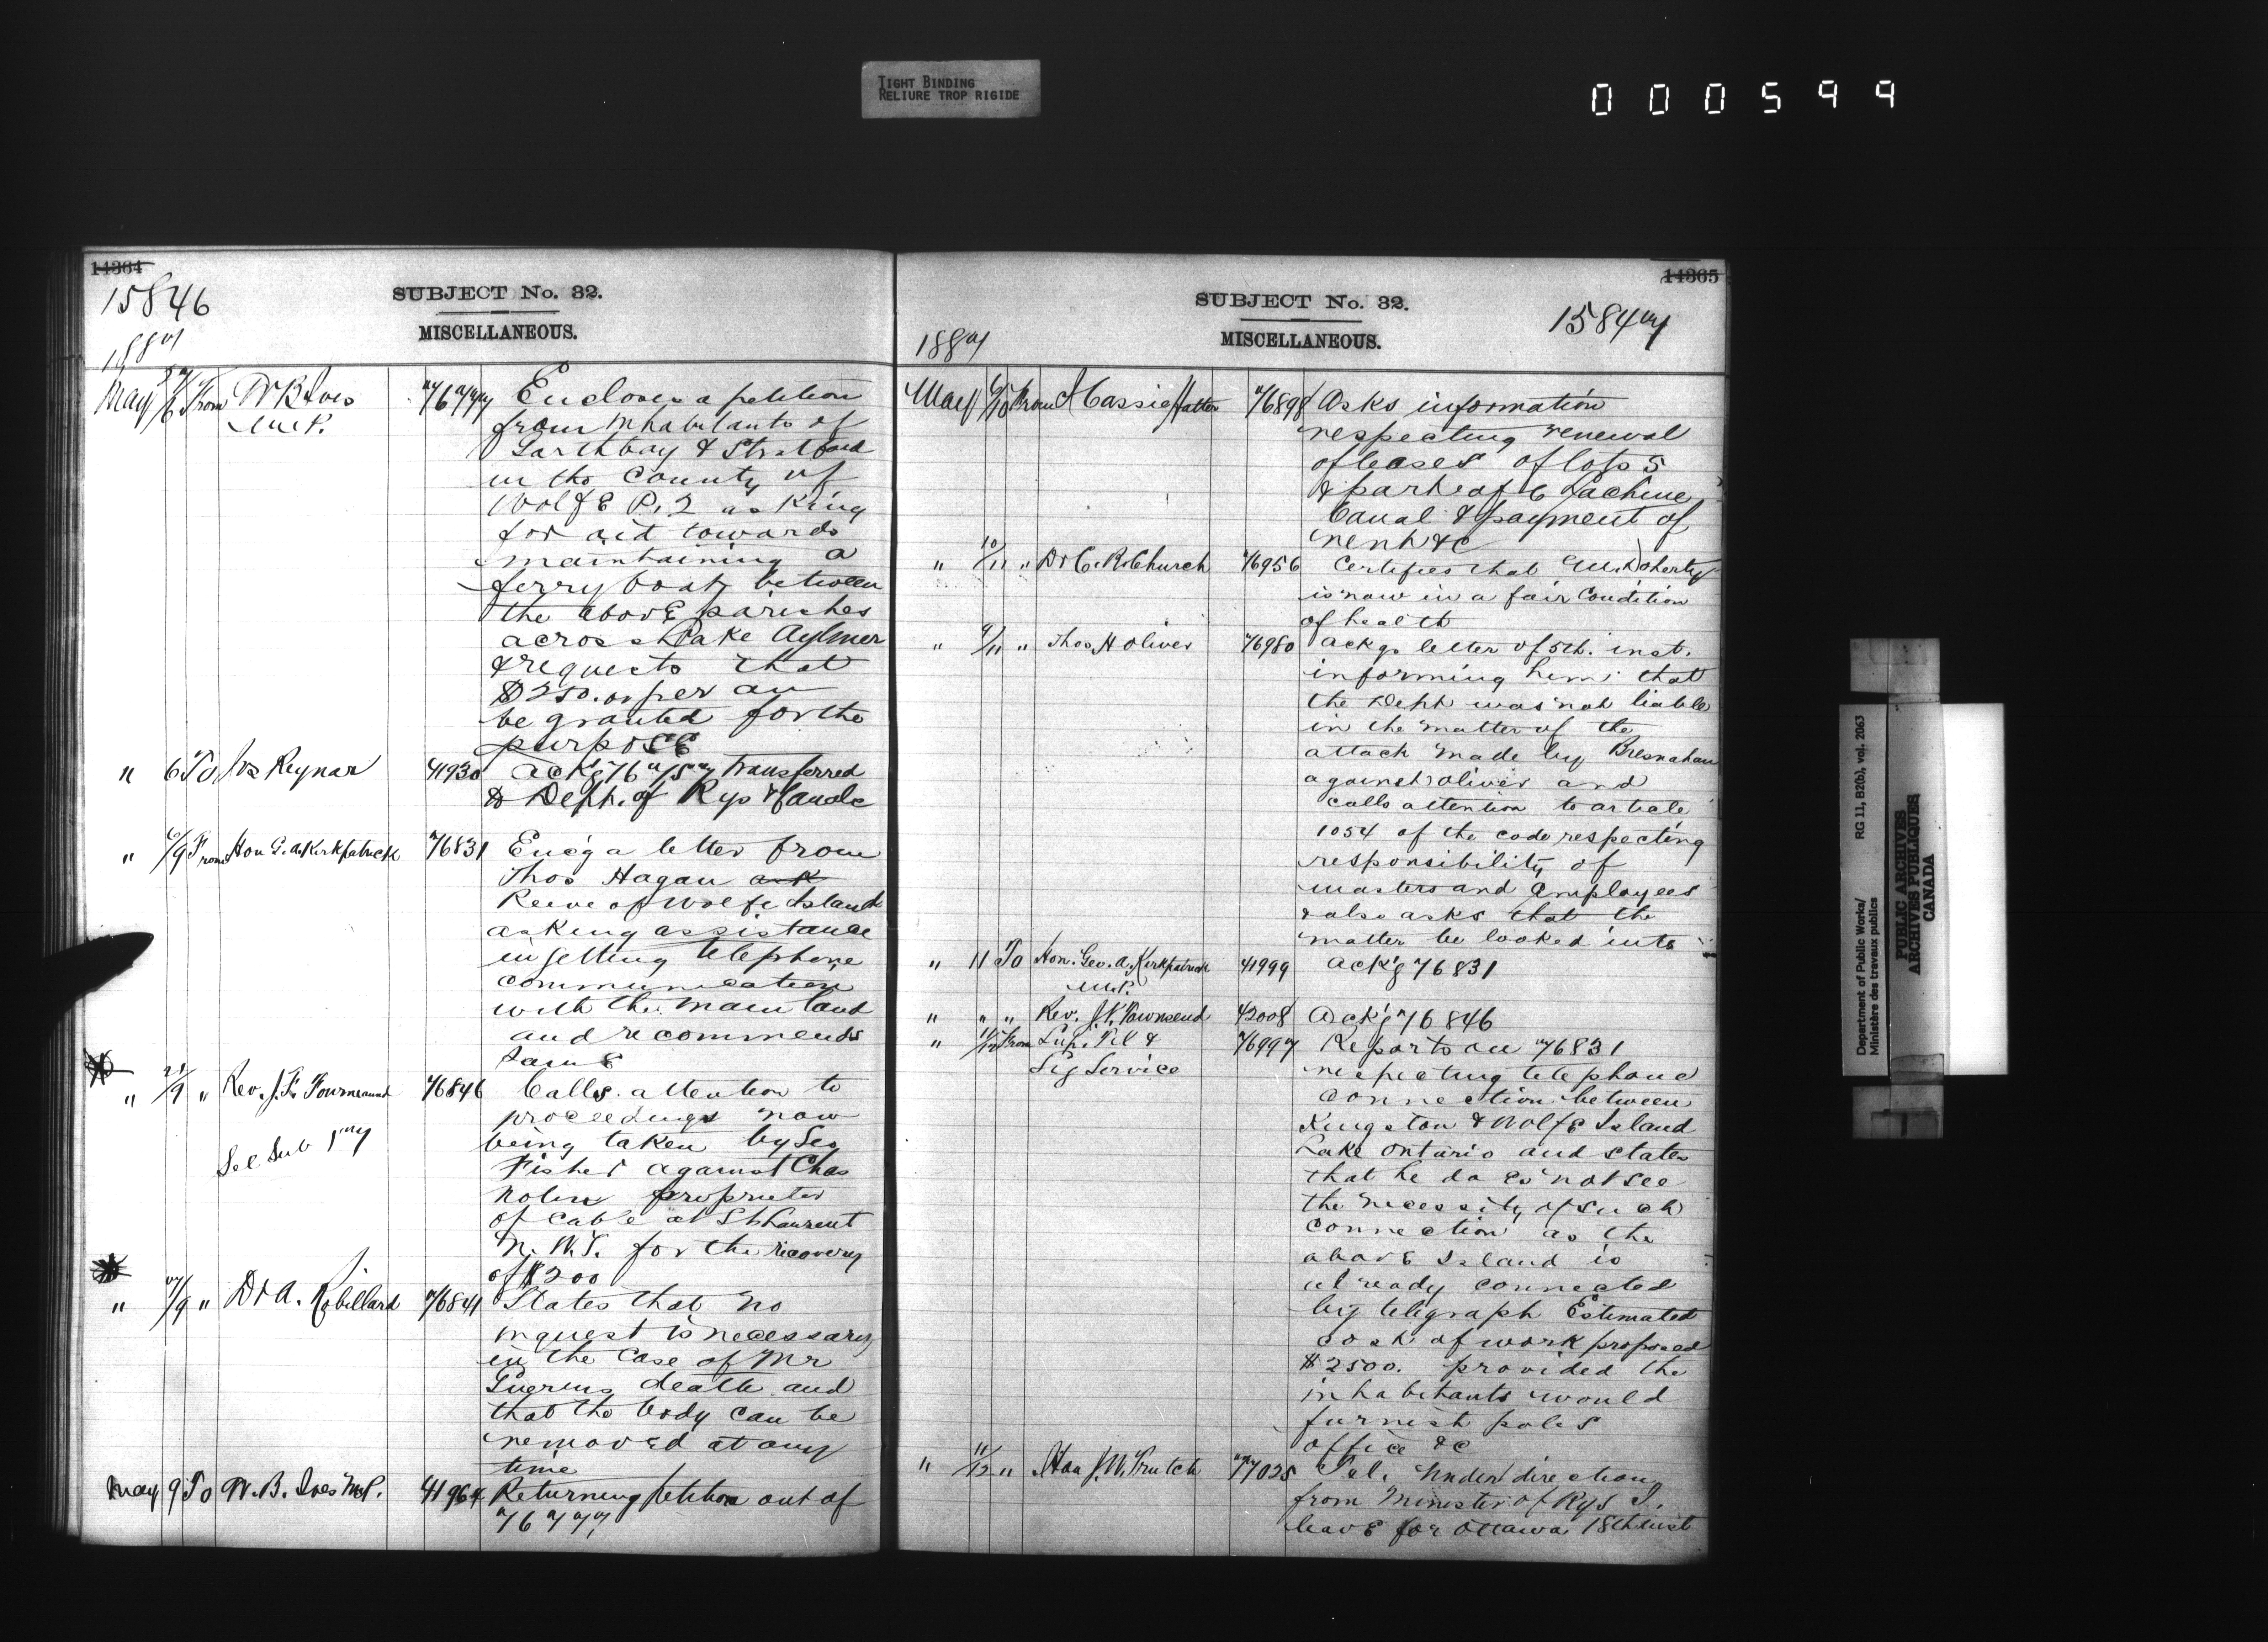 TIGHT BINDING
RELIURE TROP RIGIDE
000599
14364
15846
SUBJECT No. 32.
MISCELLANEOUS.
1887
May 5/6 From W B Ives 76777 Encloses a petition
M.P. from inhabitants of
Garthbay & Stratford
in the County of
Wolfe P.Q asking
for aid towards
maintaining a
ferry boat between
the above parishes
across Lake Aylmer
& requests that
$250.00 per an
be granted for the
purpose
" 6 To Jos Reynar 41930 Ackg 76757 transferred
to Dept. of Rys & Canals
" 6/9 From Hon G. A. Kirkpatrick 76831 Enc'g a letter from
Thos Hagan ask
Reeve of Wolfe Island
asking assistance
in getting telephone
communication
with the main land
and recommends
same
" 21/9 " Rev. J. F. 76846 Calls attention to
proceedings now
See Sub 177 being taken by Geo
Fisher against Chas
Nolin proprietor
of cable at St Laurent
N. W. T. for the recovery
of $200
" 7/9 " Dr A. Robillard 76841 States that no
inquest is necessary
in the case of Mr
Guerins death and
that the body can be
removed at any
time
May 9 To W. B. Ives M.P. 41964 Returning petition out of
76777
14365
SUBJECT No. 32.
MISCELLANEOUS.
15847
1887
May 6/10 From J Cassie Hatton 76898 Asks information
respecting renewal
of leases of lots 5
& part of 6 Lachine
Canal & payment of
rent &c
" 10/11 " Dr C. R. Church 76956 Certifies that Doherty
is now in a fair condition
of health
" 9/11 " Thos H Oliver 76980 Ackgs letter of 5th. inst.
informing him that
the Dept was not liable
in the matter of the
attack made by Bresnahan
against Oliver and
calls attention to article
1054 of the code respecting
responsibility of
masters and employees
& also asks that the
matter be looked into
" 11 To Hon. Geo. A. Kirkpatrick 41999 Ack'g 76831
M.P.
" " " Rev. J. Townsend 42008 Ack'g 76846
" 11/12 From Sup. Tel & 76997 Reports on 76831
Sig Service respecting telephone
connection between
Kingston & Wolfe Island
Lake Ontario and states
that he does not see
the necessity of such
connection as the
above Island is
already connected
by telegraph Estimated
cost of work proposed
$2500. provided the
inhabitants would
furnish poles
office &c
" 11/12 " Hon J. W. Trutch 77025 Tel. Under direction
from Minister of Rys I.
leave for Ottawa 18th inst
Department of Public Works/ RG 11, B2(b), vol. 2063
Ministère des travaux publics
PUBLIC ARCHIVES
ARCHIVES PUBLIQUES
CANADA